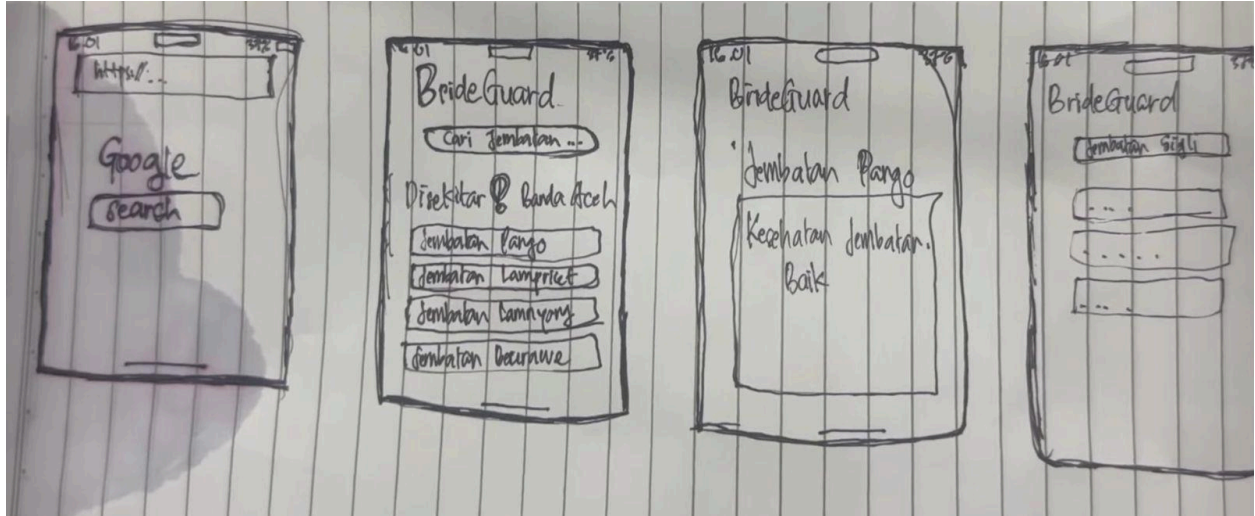 16.01 37%
https://:...
Google
Search
16.01 37%
BrideGuard
Cari Jembatan ...
Disekitar Banda Aceh
Jembatan Pango
Jembatan Lampriet
Jembatan Lamnyong
Jembatan Beurawe
16.01 37%
BrideGuard
Jembatan Pango
Kesehatan Jembatan.
Baik
16.01
BrideGuard
Jembatan Sigli
....
.....
....